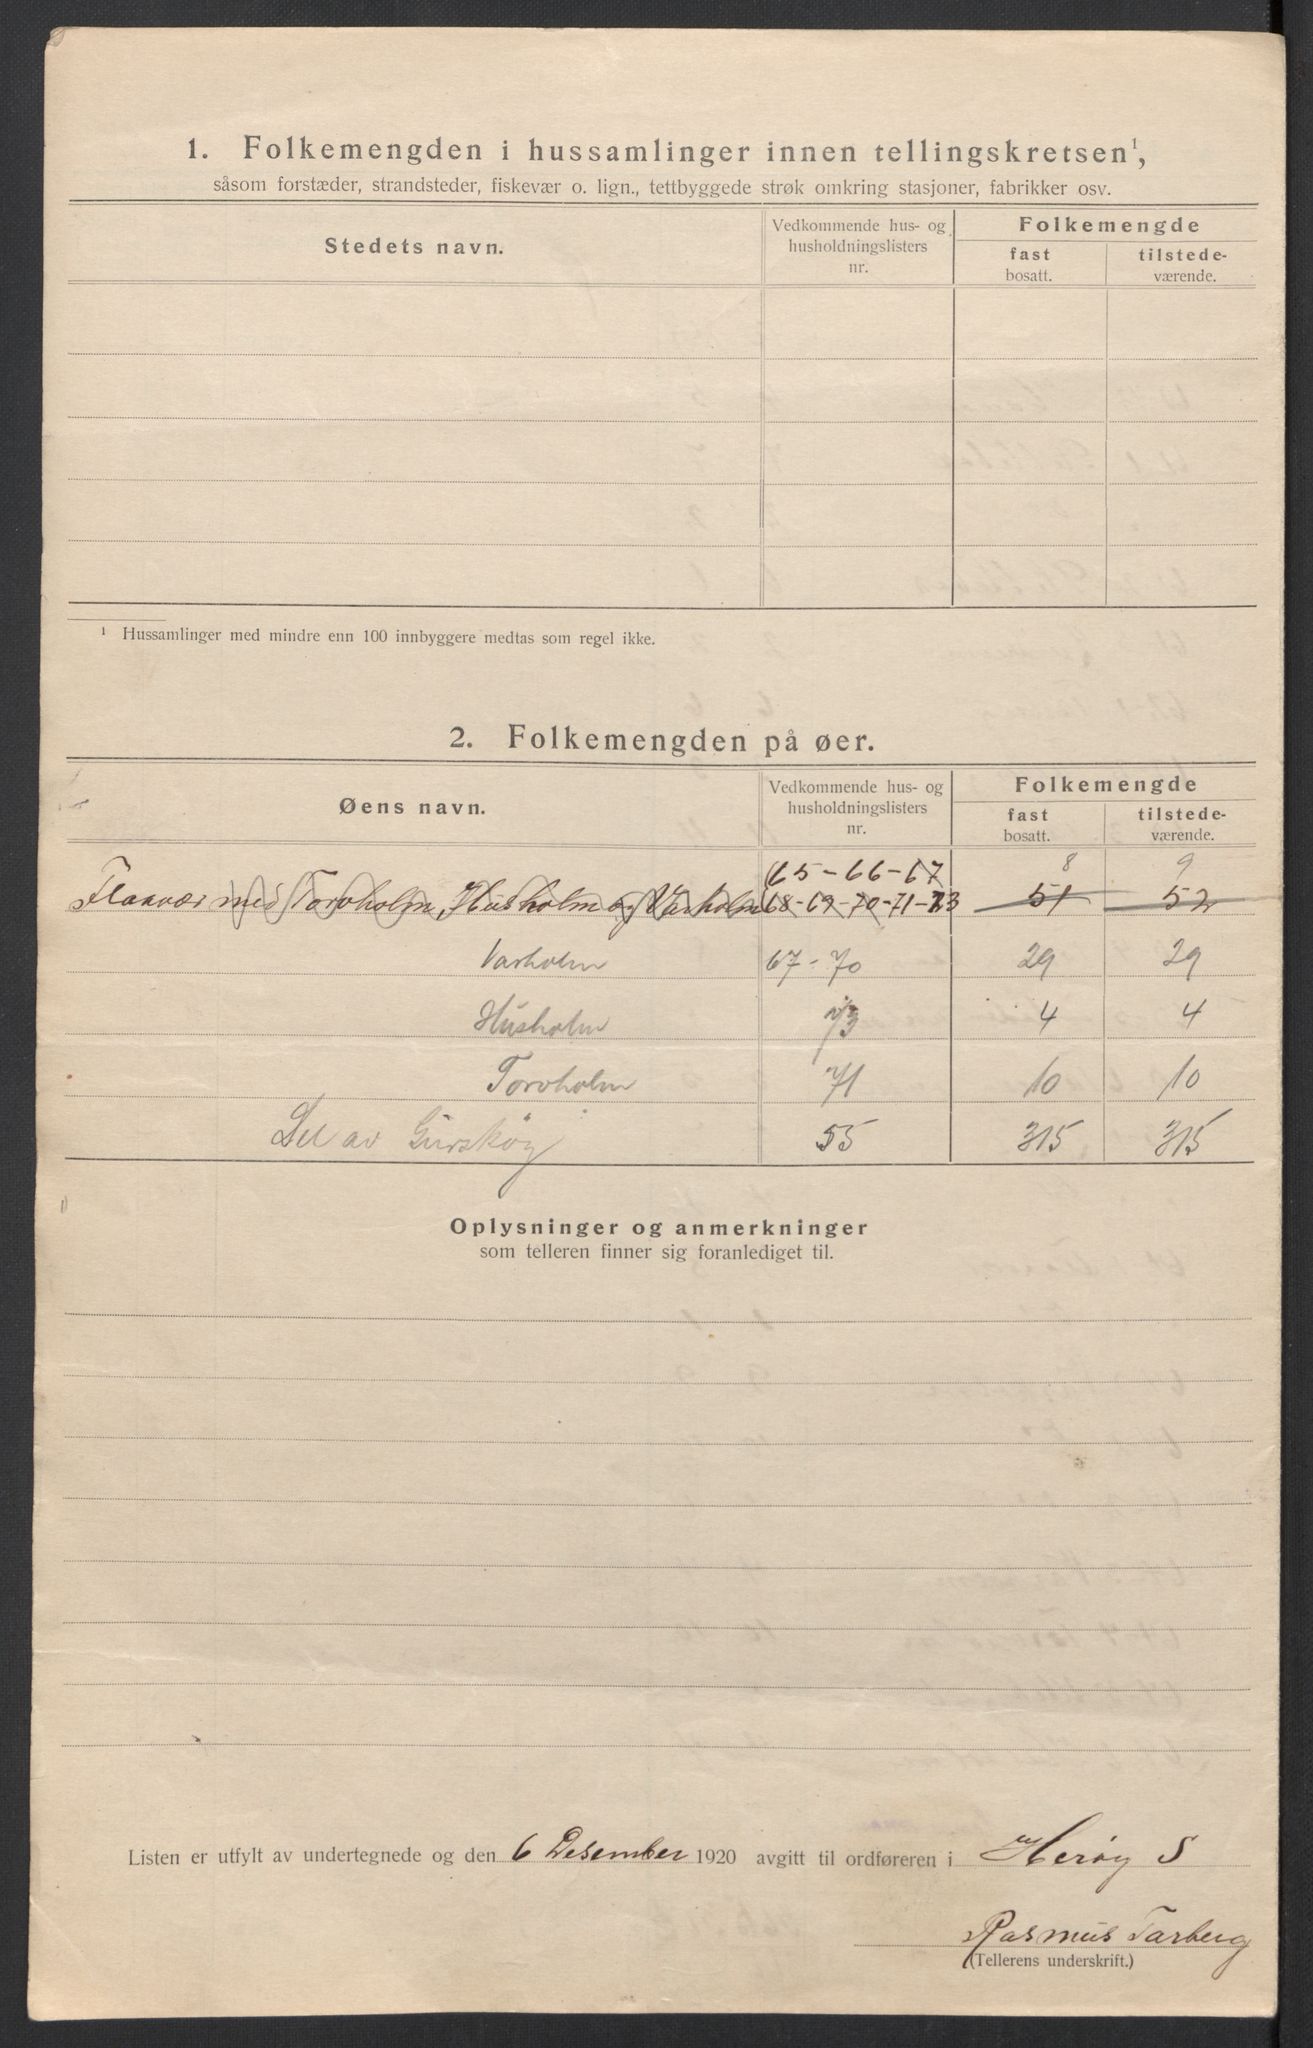 1. Folkemengden i hussamlinger innen tellingskretsen¹,
såsom forstæder, strandsteder, fiskevær o. lign., tettbyggede strøk omkring stasjoner, fabrikker osv.
Stedets navn.
Vedkommende hus- og husholdningslisters nr.
Folkemengde
fast bosatt.
tilstede-værende.
¹ Hussamlinger med mindre enn 100 innbyggere medtas som regel ikke.
2. Folkemengden på øer.
Øens navn.
Vedkommende hus- og husholdningslisters nr.
Folkemengde
fast bosatt.
tilstede-værende.
65-66-67 8 9
Flaavær med Torvholm, Husholm og Varholm 68-69-70-71-73 51 52
Varholm 67-70 29 29
Husholm 73 4 4
Torvholm 71 10 10
Del av Gurskøy 55 315 315
Oplysninger og anmerkninger
som telleren finner sig foranlediget til.
Listen er utfylt av undertegnede og den 6 Desember 1920 avgitt til ordføreren i Herøy S
Rasmus Tarberg
(Tellerens underskrift.)